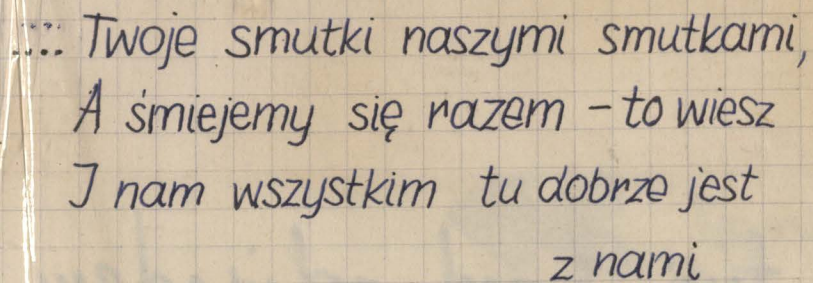 ::::: Twoje smutki naszymi smutkami,
A śmiejemy się razem – to wiesz
I nam wszystkim tu dobrze jest
z nami